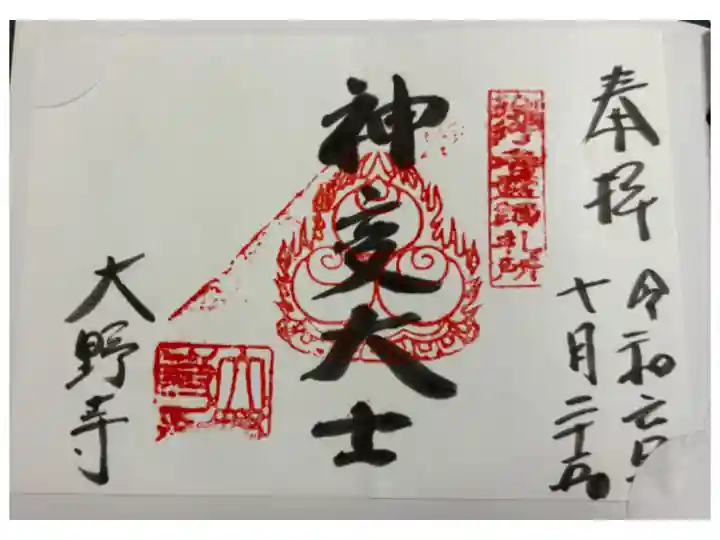 奉拝
令和六年
十月二十五日
役行者霊蹟札所
神変大士
大野寺